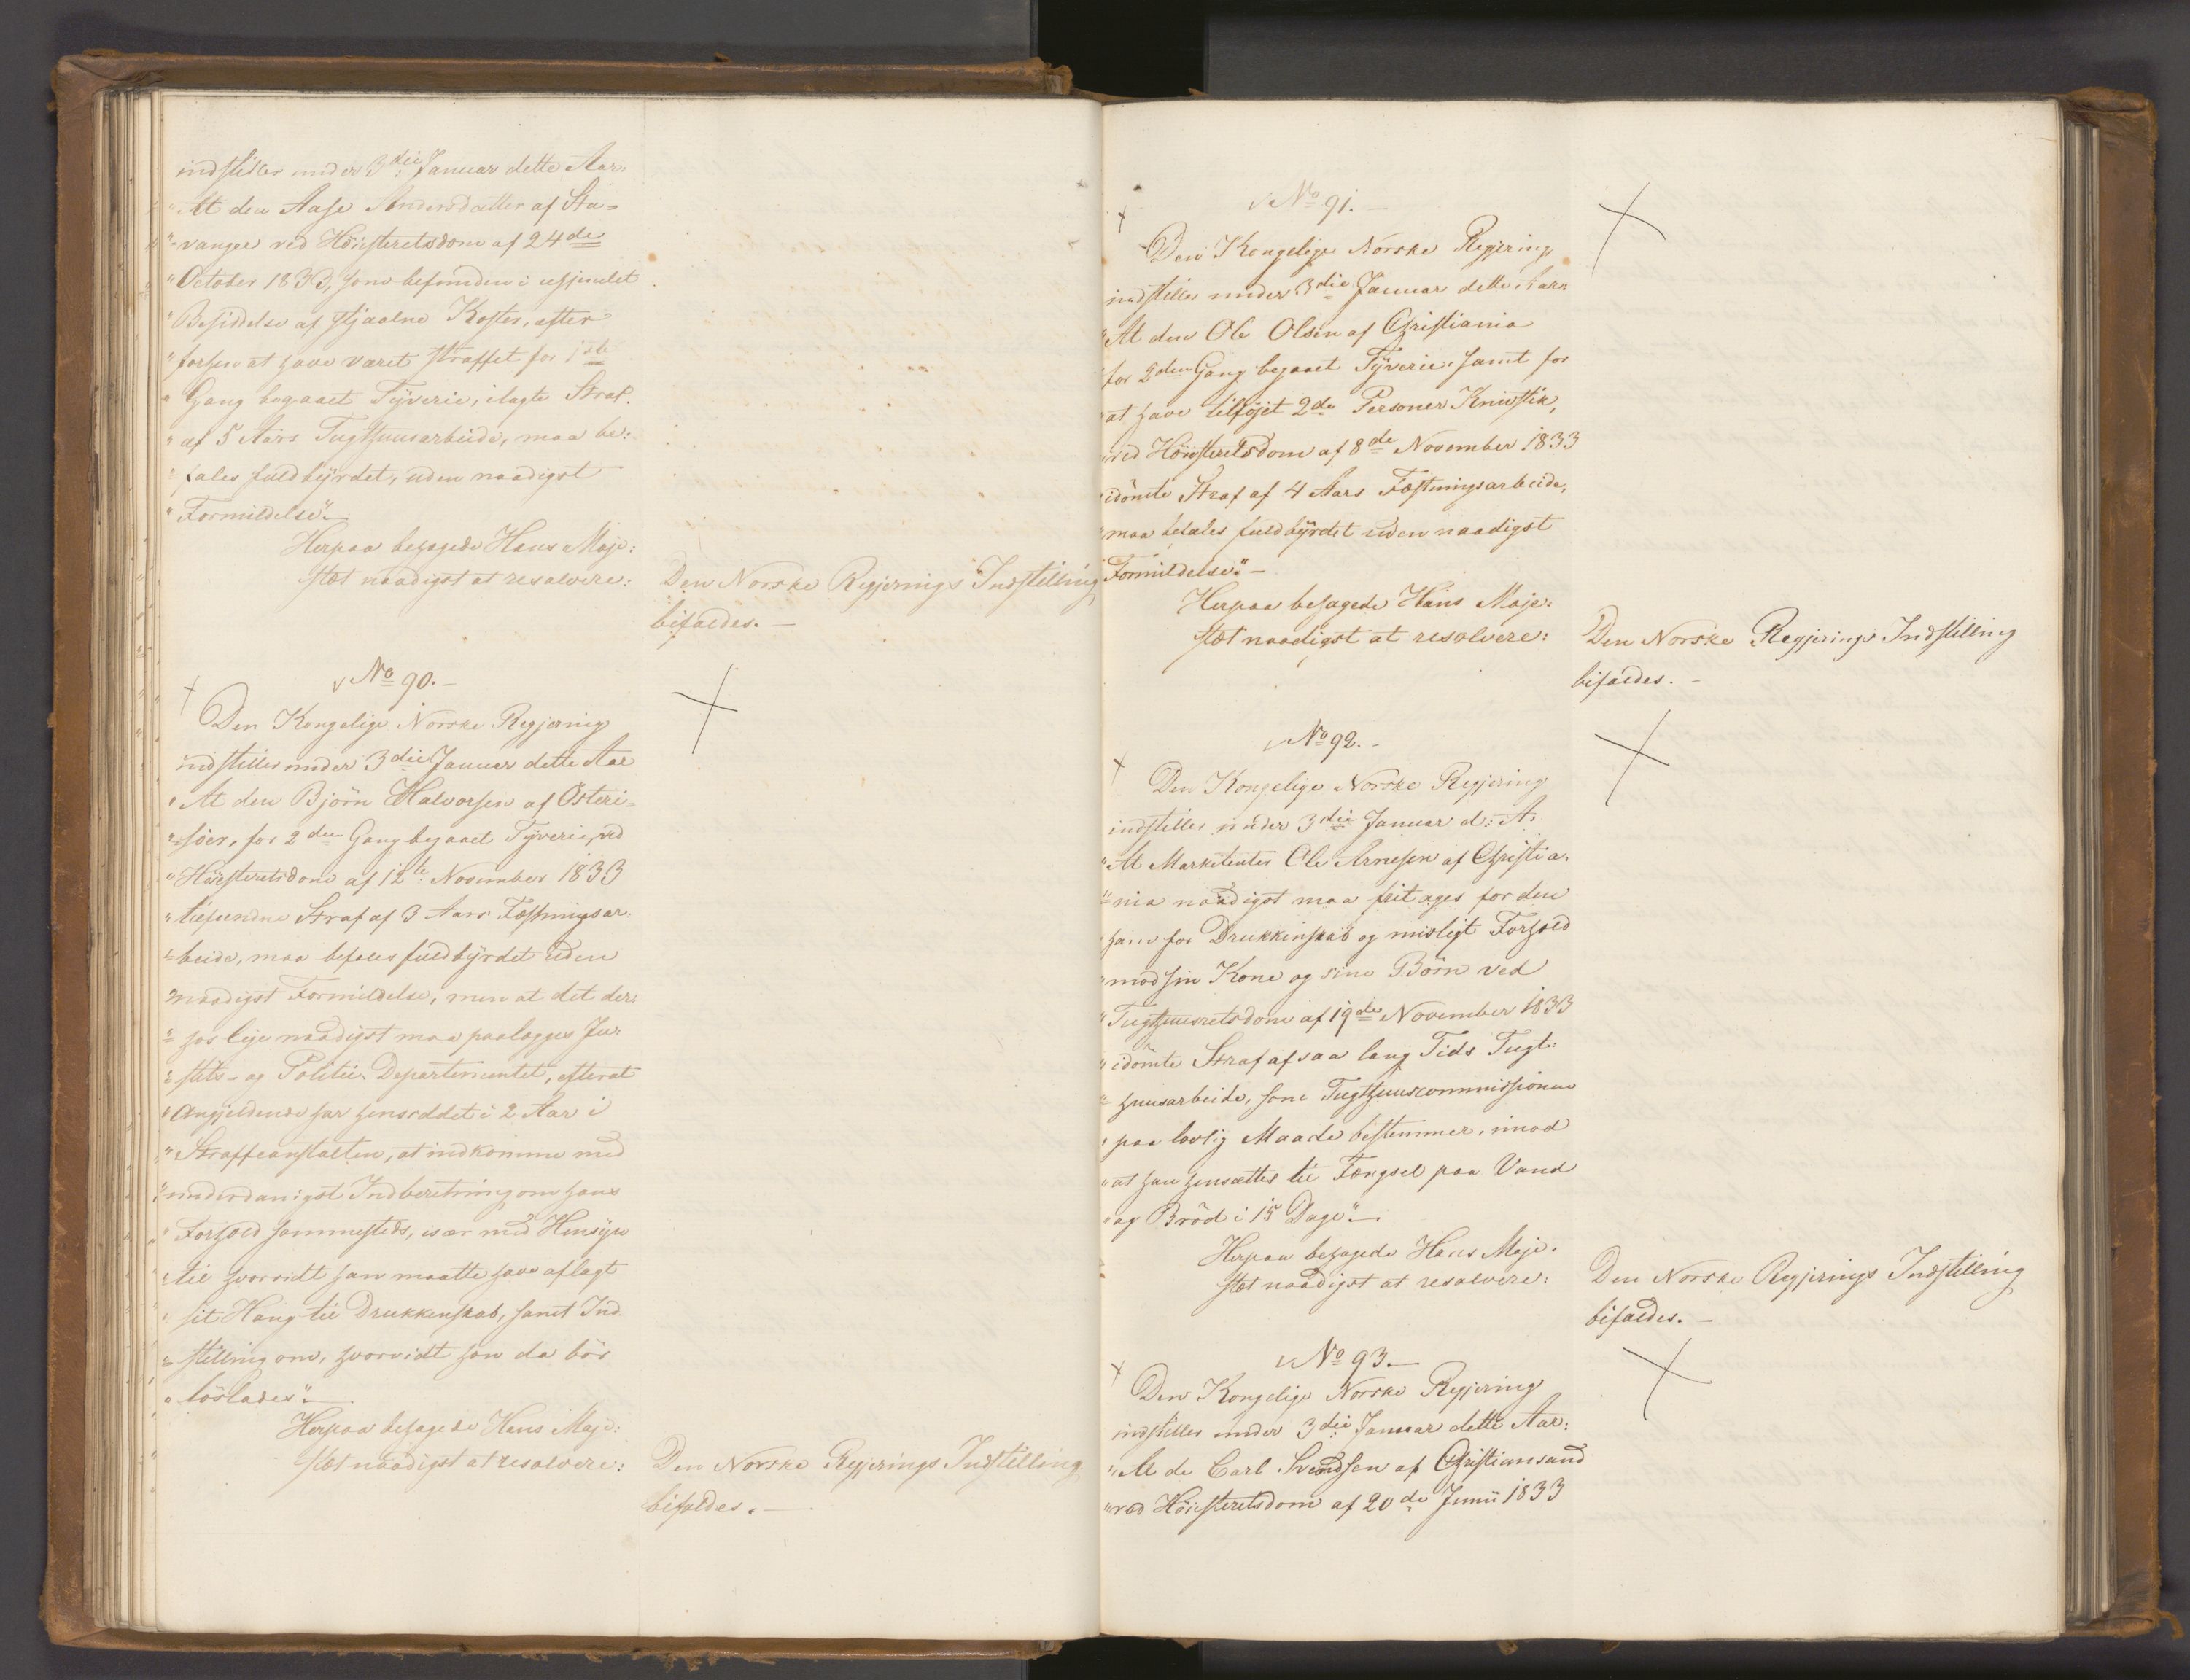 indstiller under 3die Januar dette Aar:
"At den Aase Andersdatter af Sta=
"vanger ved Höiesteretsdom af 24de
"October 1833, som befunden i ufjemlet
"Besiddelse af stjaalne Koster, efter
"forhen at have været straffet for 1ste
"Gang begaaet Tyverie, ilagte Straf
"af 5 Aars Tugthuusarbeide, maa be:
"fales fuldbyrdet, uden naadigst
"Formildelse".
Herpaa behagede Hans Maje:
stæt naadigst at resolvere:
Den Norske Regjerings Indstilling
bifaldes. —
No 90. —
Den Kongelige Norske Regjering
indstiller under 3die Januar dette Aar
"At den Björn Halvorsen af Österi=
"söer, for 2den Gang begaaet Tyverie, ved
"Höiesteretsdom af 12te November 1833
"tilfundne Straf af 3 Aars Fæstningsar:
"beide, maa befales fuldbyrdet uden
"naadigst Formildelse, men at det der:
"hos lige naadigst maa paalægges Ju=
"stits- og Politie-Departementet, efterat
"Angjeldende har hensiddet i 2 Aar i
"Straffeanstalten, at indkomme med
"underdanigst Indberetning om hans
"Forhold sammesteds, især med Hensyn
"til hvorvidt han maatte have aflagt
"sit Hang til Drukkenskab, samt Ind
"stilling om, hvorvidt han da bör
"löslades". —
Herpaa behagede Hans Maje:
stæt naadigst at resolvere:
Den Norske Regjerings Indstilling
bifaldes. —
No 91. —
Den Kongelige Norske Regjering
indstiller under 3die Januar dette Aar:
"At den Ole Olsen af Christiania
"for 2den Gang begaaet Tyverie, samt for
"at have tilföjet 2de Personer Knivstik,
"ved Höiesteretsdom af 8de November 1833
"idömte Straf af 4 Aars Fæstningsarbeide,
"maa befales fuldbyrdet uden naadigst
"Formildelse". —
Herpaa behagede Hans Maje:
stæt naadigst at resolvere:
Den Norske Regjerings Indstilling
bifaldes. —
No 92. —
Den Kongelige Norske Regjering
indstiller under 3die Januar d: A:
"At Marketenter Ole Arnesen af Christia=
"nia naadigst maa fritages for den
"ham for Drukkenskab og misligt Forhold
"mod sin Kone og sine Börn ved
"Tugthuusretsdom af 19de November 1833
"idömte Straf af saa lang Tids Tugt:
"huusarbeide, som Tugthuuscommissionen
"paa lovlig Maade bestemmer, imod
"at han hensættes til Fængsel paa Vand
"og Bröd i 15 Dage". —
Herpaa behagede Hans Maje:
stæt naadigst at resolvere:
Den Norske Regjerings Indstilling
bifaldes. —
No 93. —
Den Kongelige Norske Regjering
indstiller under 3die Januar dette Aar:
"At de Carl Svendsen af Christiansand
"ved Höiesteretsdom af 20de Junii 1833